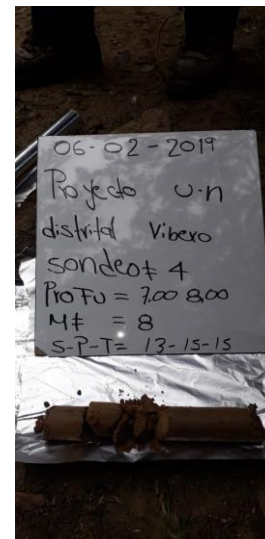 06-02-2019
Proyecto U.n
distrital Vibero
sondeo# 4
ProFu = 7.00 8.00
M# = 8
S-P-T= 13-15-15